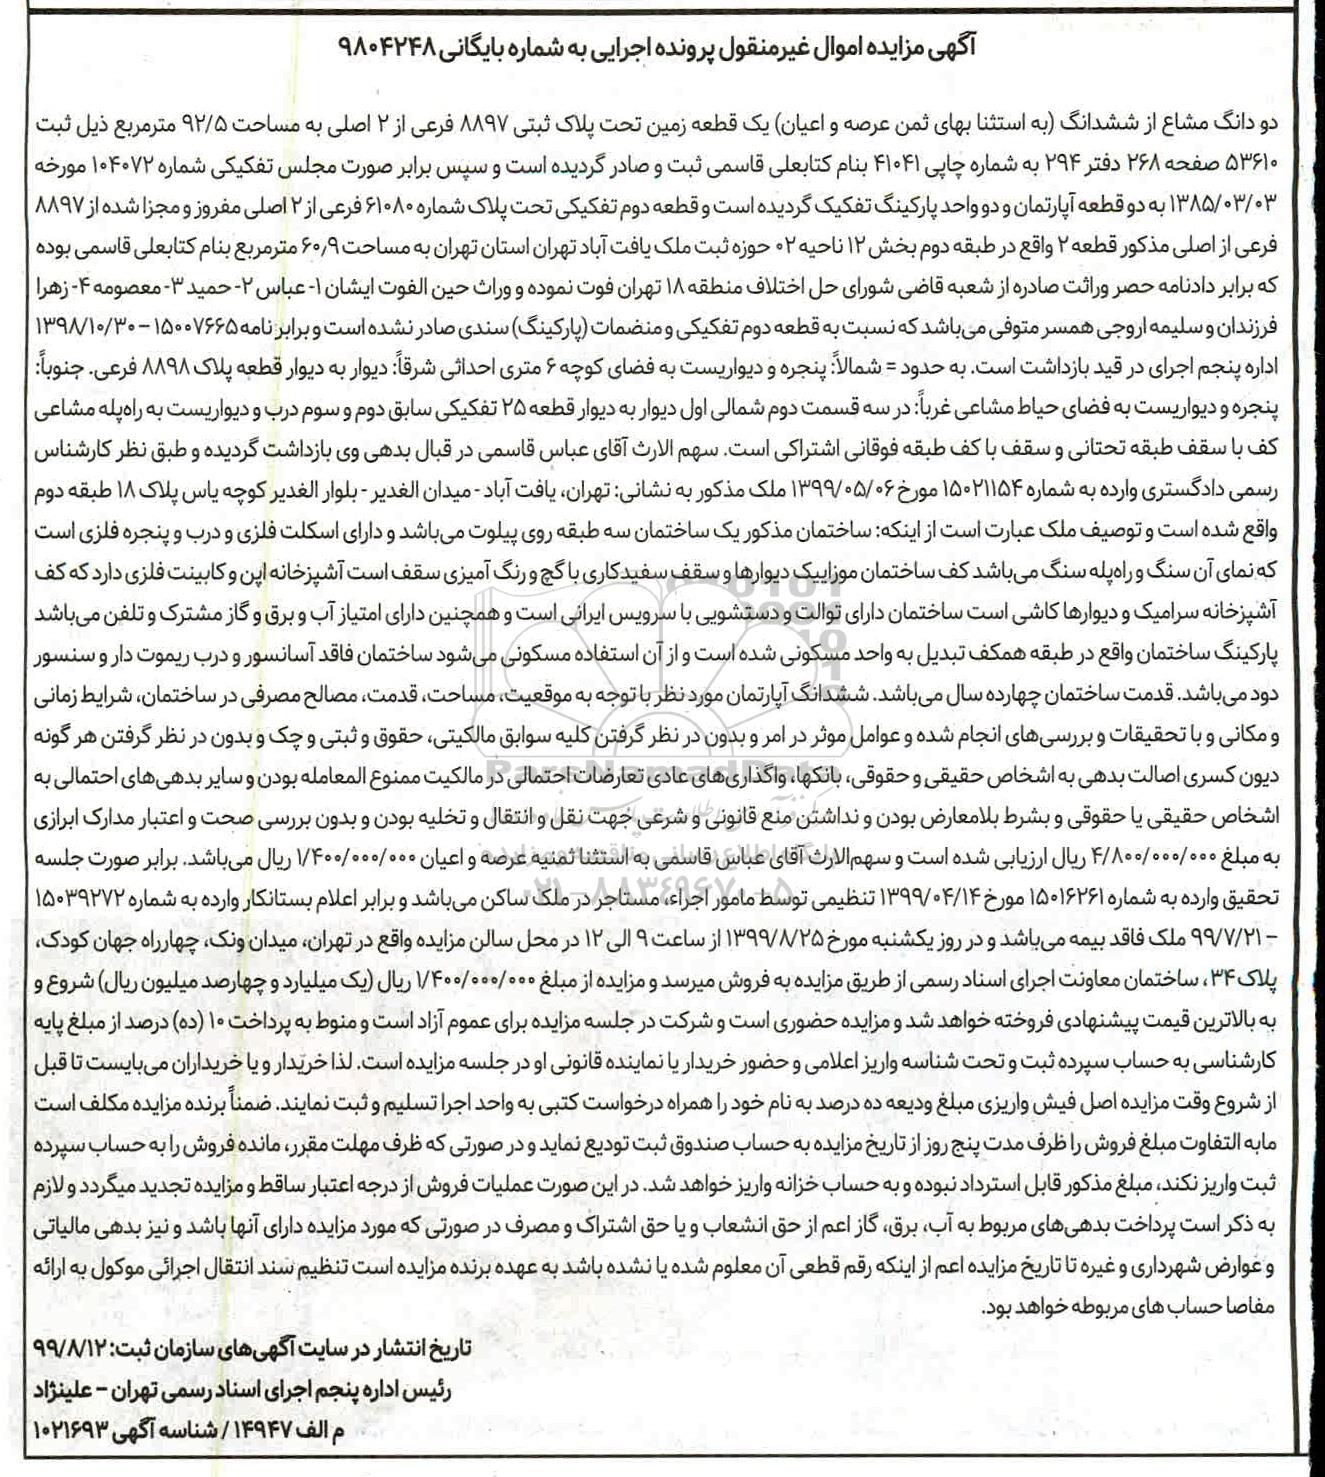 آگهی مزایده اموال غیرمنقول پرونده اجرایی به شماره بایگانی ۹۸۰۴۲۴۸
دو دانگ مشاع از ششدانگ (به استثنا بهای ثمن عرصه و اعیان) یک قطعه زمین تحت پلاک ثبتی ۸۸۹۷ فرعی از ۲ اصلی به مساحت ۹۲/۵ مترمربع ذیل ثبت
۵۳۶۱۰ صفحه ۲۶۸ دفتر ۲۹۴ به شماره چاپی ۴۱۰۴۱ بنام کتابعلی قاسمی ثبت و صادر گردیده است و سپس برابر صورت مجلس تفکیکی شماره ۱۰۴۰۷۲ مورخه
۱۳۸۵/۰۳/۰۳ به دو قطعه آپارتمان و دو واحد پارکینگ تفکیک گردیده است و قطعه دوم تفکیکی تحت پلاک شماره ۶۱۰۸۰ فرعی از ۲ اصلی مفروز و مجزا شده از ۸۸۹۷
فرعی از اصلی مذکور قطعه ۲ واقع در طبقه دوم بخش ۱۲ ناحیه ۰۲ حوزه ثبت ملک یافت آباد تهران استان تهران به مساحت ۶۰٫۹ مترمربع بنام کتابعلی قاسمی بوده
که برابر دادنامه حصر وراثت صادره از شعبه قاضی شورای حل اختلاف منطقه ۱۸ تهران فوت نموده و وراث حین الفوت ایشان ۱- عباس ۲- حمید ۳- معصومه ۴- زهرا
فرزندان و سلیمه اروجی همسر متوفی می‌باشد که نسبت به قطعه دوم تفکیکی و منضمات (پارکینگ) سندی صادر نشده است و برابر نامه ۱۵۰۰۷۶۶۵ – ۱۳۹۸/۱۰/۳۰
اداره پنجم اجرای در قید بازداشت است. به حدود = شمالاً: پنجره و دیواریست به فضای کوچه ۶ متری احداثی شرقاً: دیوار به دیوار قطعه پلاک ۸۸۹۸ فرعی. جنوباً:
پنجره و دیواریست به فضای حیاط مشاعی غرباً: در سه قسمت دوم شمالی اول دیوار به دیوار قطعه ۲۵ تفکیکی سابق دوم و سوم درب و دیواریست به راه‌پله مشاعی
کف با سقف طبقه تحتانی و سقف با کف طبقه فوقانی اشتراکی است. سهم الارث آقای عباس قاسمی در قبال بدهی وی بازداشت گردیده و طبق نظر کارشناس
رسمی دادگستری وارده به شماره ۱۵۰۲۱۱۵۴ مورخ ۱۳۹۹/۰۵/۰۶ ملک مذکور به نشانی: تهران، یافت آباد - میدان الغدیر - بلوار الغدیر کوچه یاس پلاک ۱۸ طبقه دوم
واقع شده است و توصیف ملک عبارت است از اینکه: ساختمان مذکور یک ساختمان سه طبقه روی پیلوت می‌باشد و دارای اسکلت فلزی و درب و پنجره فلزی است
که نمای آن سنگ و راه‌پله سنگ می‌باشد کف ساختمان موزاییک دیوارها و سقف سفیدکاری با گچ و رنگ آمیزی سقف است آشپزخانه اپن و کابینت فلزی دارد که کف
آشپزخانه سرامیک و دیوارها کاشی است ساختمان دارای توالت و دستشویی با سرویس ایرانی است و همچنین دارای امتیاز آب و برق و گاز مشترک و تلفن می‌باشد
پارکینگ ساختمان واقع در طبقه همکف تبدیل به واحد مسکونی شده است و از آن استفاده مسکونی می‌شود ساختمان فاقد آسانسور و درب ریموت دار و سنسور
دود می‌باشد. قدمت ساختمان چهارده سال می‌باشد. ششدانگ آپارتمان مورد نظر با توجه به موقعیت، مساحت، قدمت، مصالح مصرفی در ساختمان، شرایط زمانی
و مکانی و با تحقیقات و بررسی‌های انجام شده و عوامل موثر در امر و بدون در نظر گرفتن کلیه سوابق مالکیتی، حقوق و ثبتی و چک و بدون در نظر گرفتن هر گونه
دیون کسری اصالت بدهی به اشخاص حقیقی و حقوقی، بانکها، واگذاری‌های عادی تعارضات احتمالی در مالکیت ممنوع المعامله بودن و سایر بدهی‌های احتمالی به
اشخاص حقیقی یا حقوقی و بشرط بلامعارض بودن و نداشتن منع قانونی و شرعی جهت نقل و انتقال و تخلیه بودن و بدون بررسی صحت و اعتبار مدارک ابرازی
به مبلغ ۴/۸۰۰/۰۰۰/۰۰۰ ریال ارزیابی شده است و سهم‌الارث آقای عباس قاسمی به استثنا ثمنیه عرصه و اعیان ۱/۴۰۰/۰۰۰/۰۰۰ ریال می‌باشد. برابر صورت جلسه
تحقیق وارده به شماره ۱۵۰۱۶۲۶۱ مورخ ۱۳۹۹/۰۴/۱۴ تنظیمی توسط مامور اجراء، مستاجر در ملک ساکن می‌باشد و برابر اعلام بستانکار وارده به شماره ۱۵۰۳۹۲۷۲
– ۹۹/۷/۲۱ ملک فاقد بیمه می‌باشد و در روز یکشنبه مورخ ۱۳۹۹/۸/۲۵ از ساعت ۹ الی ۱۲ در محل سالن مزایده واقع در تهران، میدان ونک، چهارراه جهان کودک،
پلاک ۳۴، ساختمان معاونت اجرای اسناد رسمی از طریق مزایده به فروش میرسد و مزایده از مبلغ ۱/۴۰۰/۰۰۰/۰۰۰ ریال (یک میلیارد و چهارصد میلیون ریال) شروع و
به بالاترین قیمت پیشنهادی فروخته خواهد شد و مزایده حضوری است و شرکت در جلسه مزایده برای عموم آزاد است و منوط به پرداخت ۱۰ (ده) درصد از مبلغ پایه
کارشناسی به حساب سپرده ثبت و تحت شناسه واریز اعلامی و حضور خریدار یا نماینده قانونی او در جلسه مزایده است. لذا خریدار و یا خریداران می‌بایست تا قبل
از شروع وقت مزایده اصل فیش واریزی مبلغ ودیعه ده درصد به نام خود را همراه درخواست کتبی به واحد اجرا تسلیم و ثبت نمایند. ضمناً برنده مزایده مکلف است
مابه التفاوت مبلغ فروش را ظرف مدت پنج روز از تاریخ مزایده به حساب صندوق ثبت تودیع نماید و در صورتی که ظرف مهلت مقرر، مانده فروش را به حساب سپرده
ثبت واریز نکند، مبلغ مذکور قابل استرداد نبوده و به حساب خزانه واریز خواهد شد. در این صورت عملیات فروش از درجه اعتبار ساقط و مزایده تجدید میگردد و لازم
به ذکر است پرداخت بدهی‌های مربوط به آب، برق، گاز اعم از حق انشعاب و یا حق اشتراک و مصرف در صورتی که مورد مزایده دارای آنها باشد و نیز بدهی مالیاتی
و عوارض شهرداری و غیره تا تاریخ مزایده اعم از اینکه رقم قطعی آن معلوم شده یا نشده باشد به عهده برنده مزایده است تنظیم سند انتقال اجرائی موکول به ارائه
مفاصا حساب های مربوطه خواهد بود.
تاریخ انتشار در سایت آگهی‌های سازمان ثبت: ۹۹/۸/۱۲
رئیس اداره پنجم اجرای اسناد رسمی تهران – علینژاد
م الف ۱۴۹۴۷ / شناسه آگهی ۱۰۲۱۶۹۳
ParsNamadData
۰۲۱-۸۸۳۴۹۶۷۰-۵